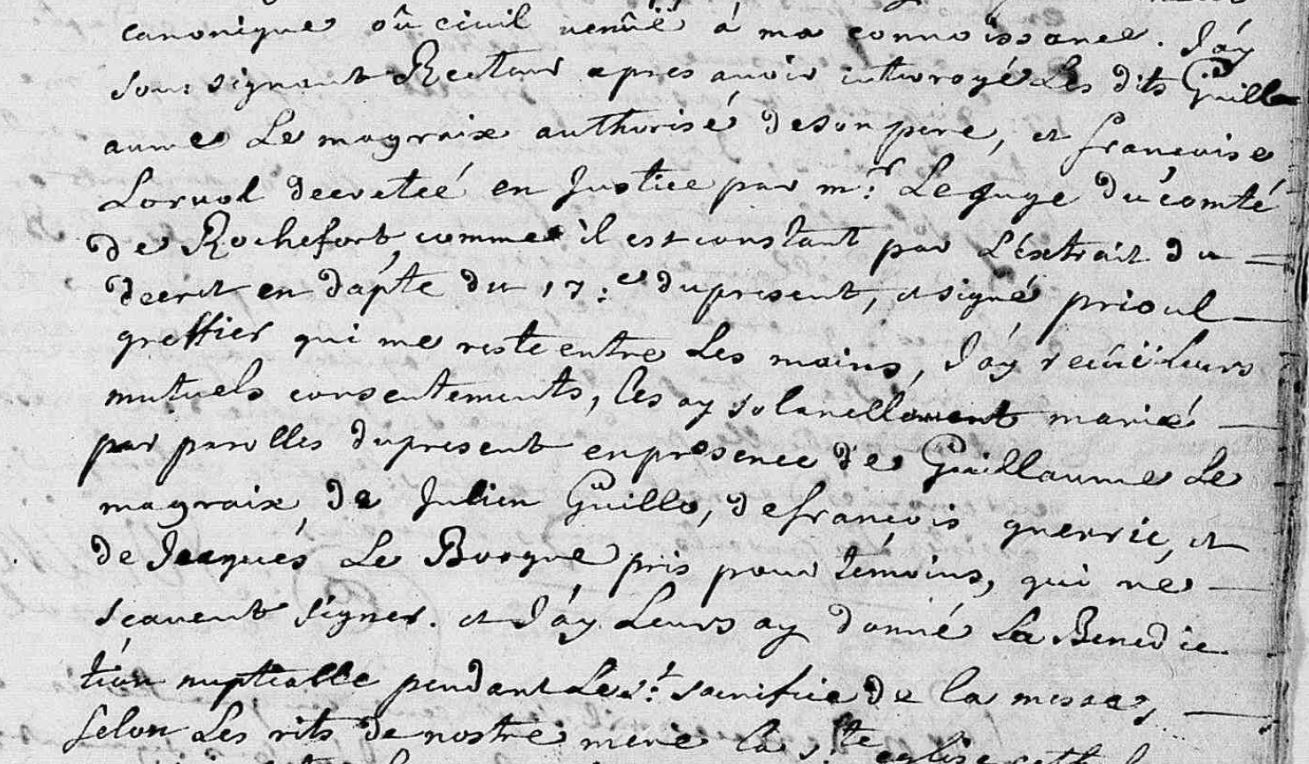 canonique où civil venüe à ma connoissance. J'ay
soussignant Recteur apres avoir interrogé Les dits Guill
aume Le magraix authorisé de son pere, et francoise
Lorvol decretée en Justice par mr. Le juge du comté
de Rochefort, comme il est constant par L'extrait du
decret en dapte du 17.e du present, et signé prioul
greffier qui me reste entre Les mains, J'ay recüe Leurs
mutuels consentements, les ay solanellement marié
par parolles du present en presence de Guillaume Le
magraix, de Julien Guillo, de francois guerric, et
de Jacques Le Borgne pris pour témoins, qui ne
scavent signer. et J'ay Leurs ay donné La Benedic
tion nuptialle pendant Le st. sacrifice de la messe,
selon Les rits de nostre mere la ste église